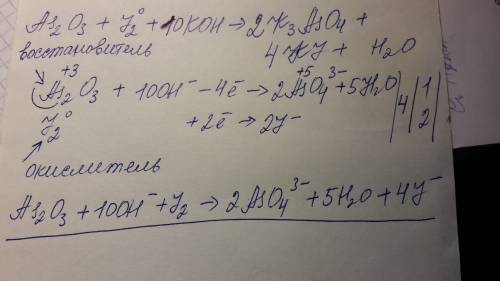 As₂O₃ + J₂⁰ + 10KOH → 2K₃AsO₄ +
восстановитель 4KJ + H₂O
+3 +5
As₂O₃ + 10OH⁻ - 4ē → 2AsO₄³⁻ + 5H₂O | 4 | 1
J₂⁰ + 2ē → 2J⁻ | 2
окислитель
As₂O₃ + 10OH⁻ + J₂ → 2AsO₄³⁻ + 5H₂O + 4J⁻